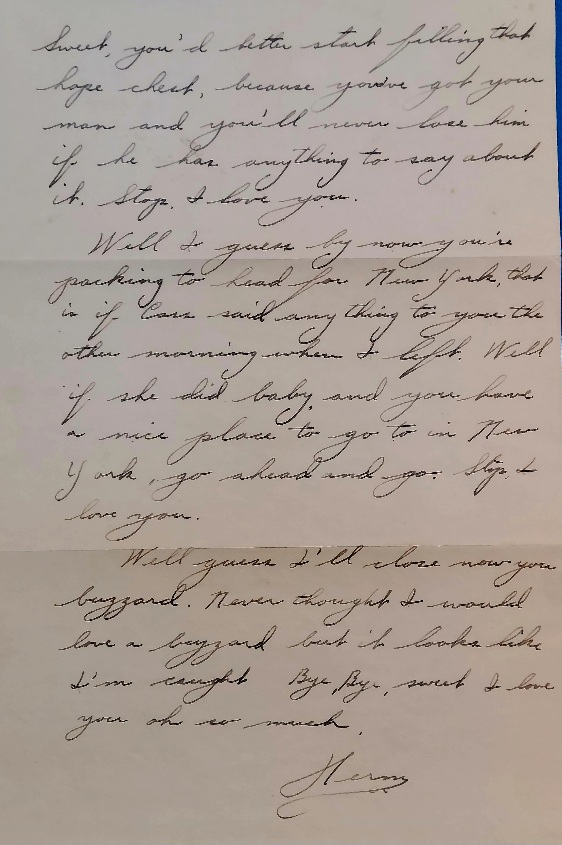 Sweet, you'd better start filling that
hope chest, because you've got your
man and you'll never lose him
if he has anything to say about
it. Stop. I love you.
Well I guess by now you're
packing to head for New York, that
is if said anything to you the
other morning when I left. Well
if she did baby, and you have
a nice place to go to in New
York, go ahead and go. Stop. I
love you.
Well guess I'll close now you
buzzard. Never thought I would
love a buzzard but it looks like
I'm caught Bye, Bye, sweet I love
you oh so much.
Herm